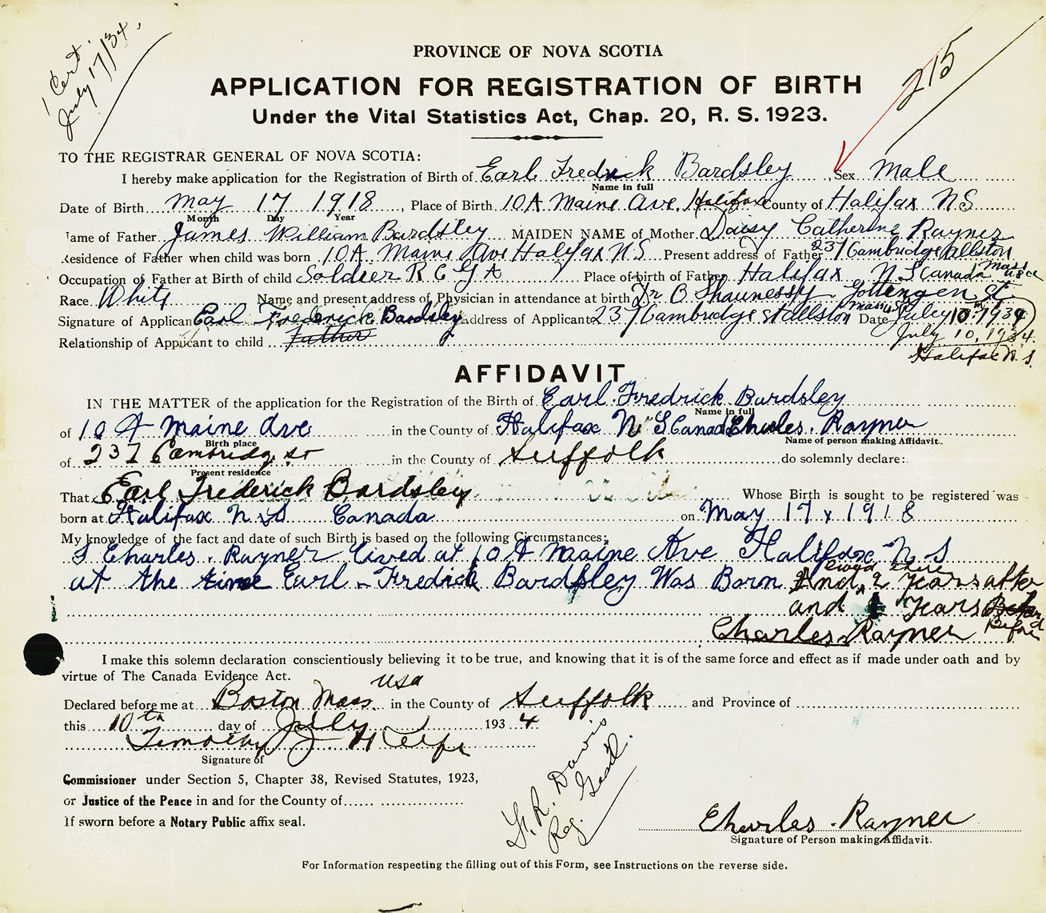 1 Cert.
July 17/34.
215
PROVINCE OF NOVA SCOTIA
APPLICATION FOR REGISTRATION OF BIRTH
Under the Vital Statistics Act, Chap. 20, R. S. 1923.
TO THE REGISTRAR GENERAL OF NOVA SCOTIA:
I hereby make application for the Registration of Birth of Earl Fredrick Bardsley Sex Male
Name in full
Date of Birth May 17 1918, Place of Birth 10A Maine Ave Halifax County of Halifax NS
Month Day Year
Name of Father James William Bardsley MAIDEN NAME of Mother Daisy Catherine Rayner
Residence of Father when child was born 10A Maine Ave Halifax NS Present address of Father 237 Cambridge Allston
Mass
Occupation of Father at Birth of child Soldier R C G A Place of birth of Father Halifax N S Canada
Race White Name and present address of Physician in attendance at birth Dr O Shaunessy Gottengen St
Signature of Applicant Earl Frederick Bardsley Address of Applicant 237 Cambridge st Allston Mass Date July 10 1934
July 10, 1934.
Relationship of Applicant to child Father
Halifax N.S.
AFFIDAVIT
IN THE MATTER of the application for the Registration of the Birth of Earl Fredrick Bardsley
Name in full
of 10 A Maine Ave in the County of Halifax N S Canada Charles Rayner
Birth place Name of person making Affidavit.
of 237 Cambridge St in the County of Suffolk do solemnly declare:
Present residence
That Earl Frederick Bardsley Whose Birth is sought to be registered was
born at Halifax N.S Canada on May 17 1918
My knowledge of the fact and date of such Birth is based on the following Circumstances:
I Charles Rayner Lived at 10 A Maine Ave Halifax N S
at the time Earl Fredrick Bardsley Was Born And 2 Years after
and Years
Before
Charles Rayner
I make this solemn declaration conscientiously believing it to be true, and knowing that it is of the same force and effect as if made under oath and by
virtue of The Canada Evidence Act.
Declared before me at Boston Mass USA in the County of Suffolk and Province of
this 10th day of July 1934
Timothy J
Signature of
Commissioner under Section 5, Chapter 38, Revised Statutes, 1923,
or Justice of the Peace in and for the County of
If sworn before a Notary Public affix seal.
R. Davis
Reg. Genl.
Charles Rayner
Signature of Person making Affidavit.
For Information respecting the filling out of this Form, see Instructions on the reverse side.